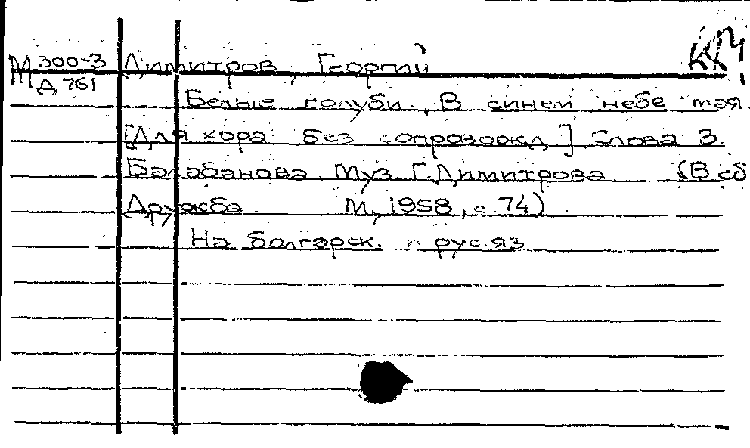 М 300-3 Димитров, Георгий
Д 761
Белые голуби. В синем небе тая.
[Для хора без сопровожд.] Слова З.
Балабанова Муз. Г. Димитрова (В сб
Дружба М, 1958, с 74)
На болгарск. и рус. яз